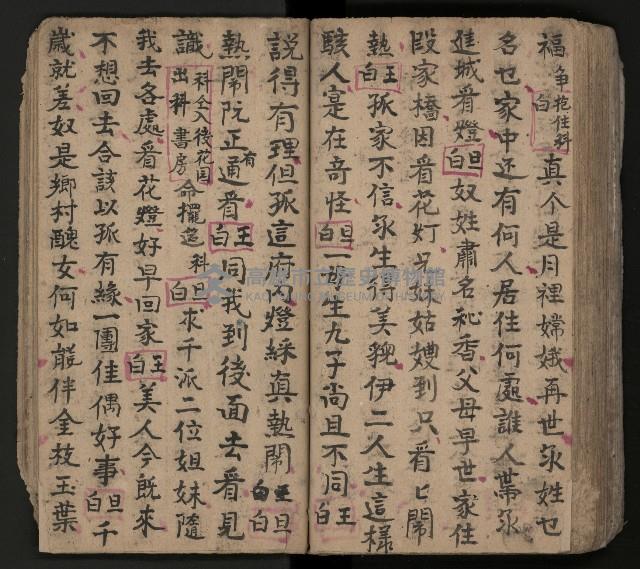 福 争白 抱住科 真个是月裡嫦娥再世尔姓乜
名乜家中还有何人居住何處誰人帶尔
進城看燈 旦白 奴姓肅名祕香父母早世家住
段家橋因看花灯与妹姑嫂到只看乜鬧
熱 王白 孤家不信尔生得美貌伊二人生這樣
駭人寔在奇怪 旦白 一母生九子尚且不同 王白
説得有理但孤這府内燈綵真熱鬧 旦白
熱鬧阮正有通看 王白 同我到後面去看見
識 科仝入後花园出科書房 命擺筵科 旦白 求千派二位姐妹隨
我去各處看花燈好早回家 王白 美人今既來
不想回去合該以孤有緣一團佳偶好事 旦白 千
歲就差奴是鄉村醜女何如能伴金枝玉葉
高雄市立歷史博物館
KAOHSIUNG MUSEUM OF HISTORY